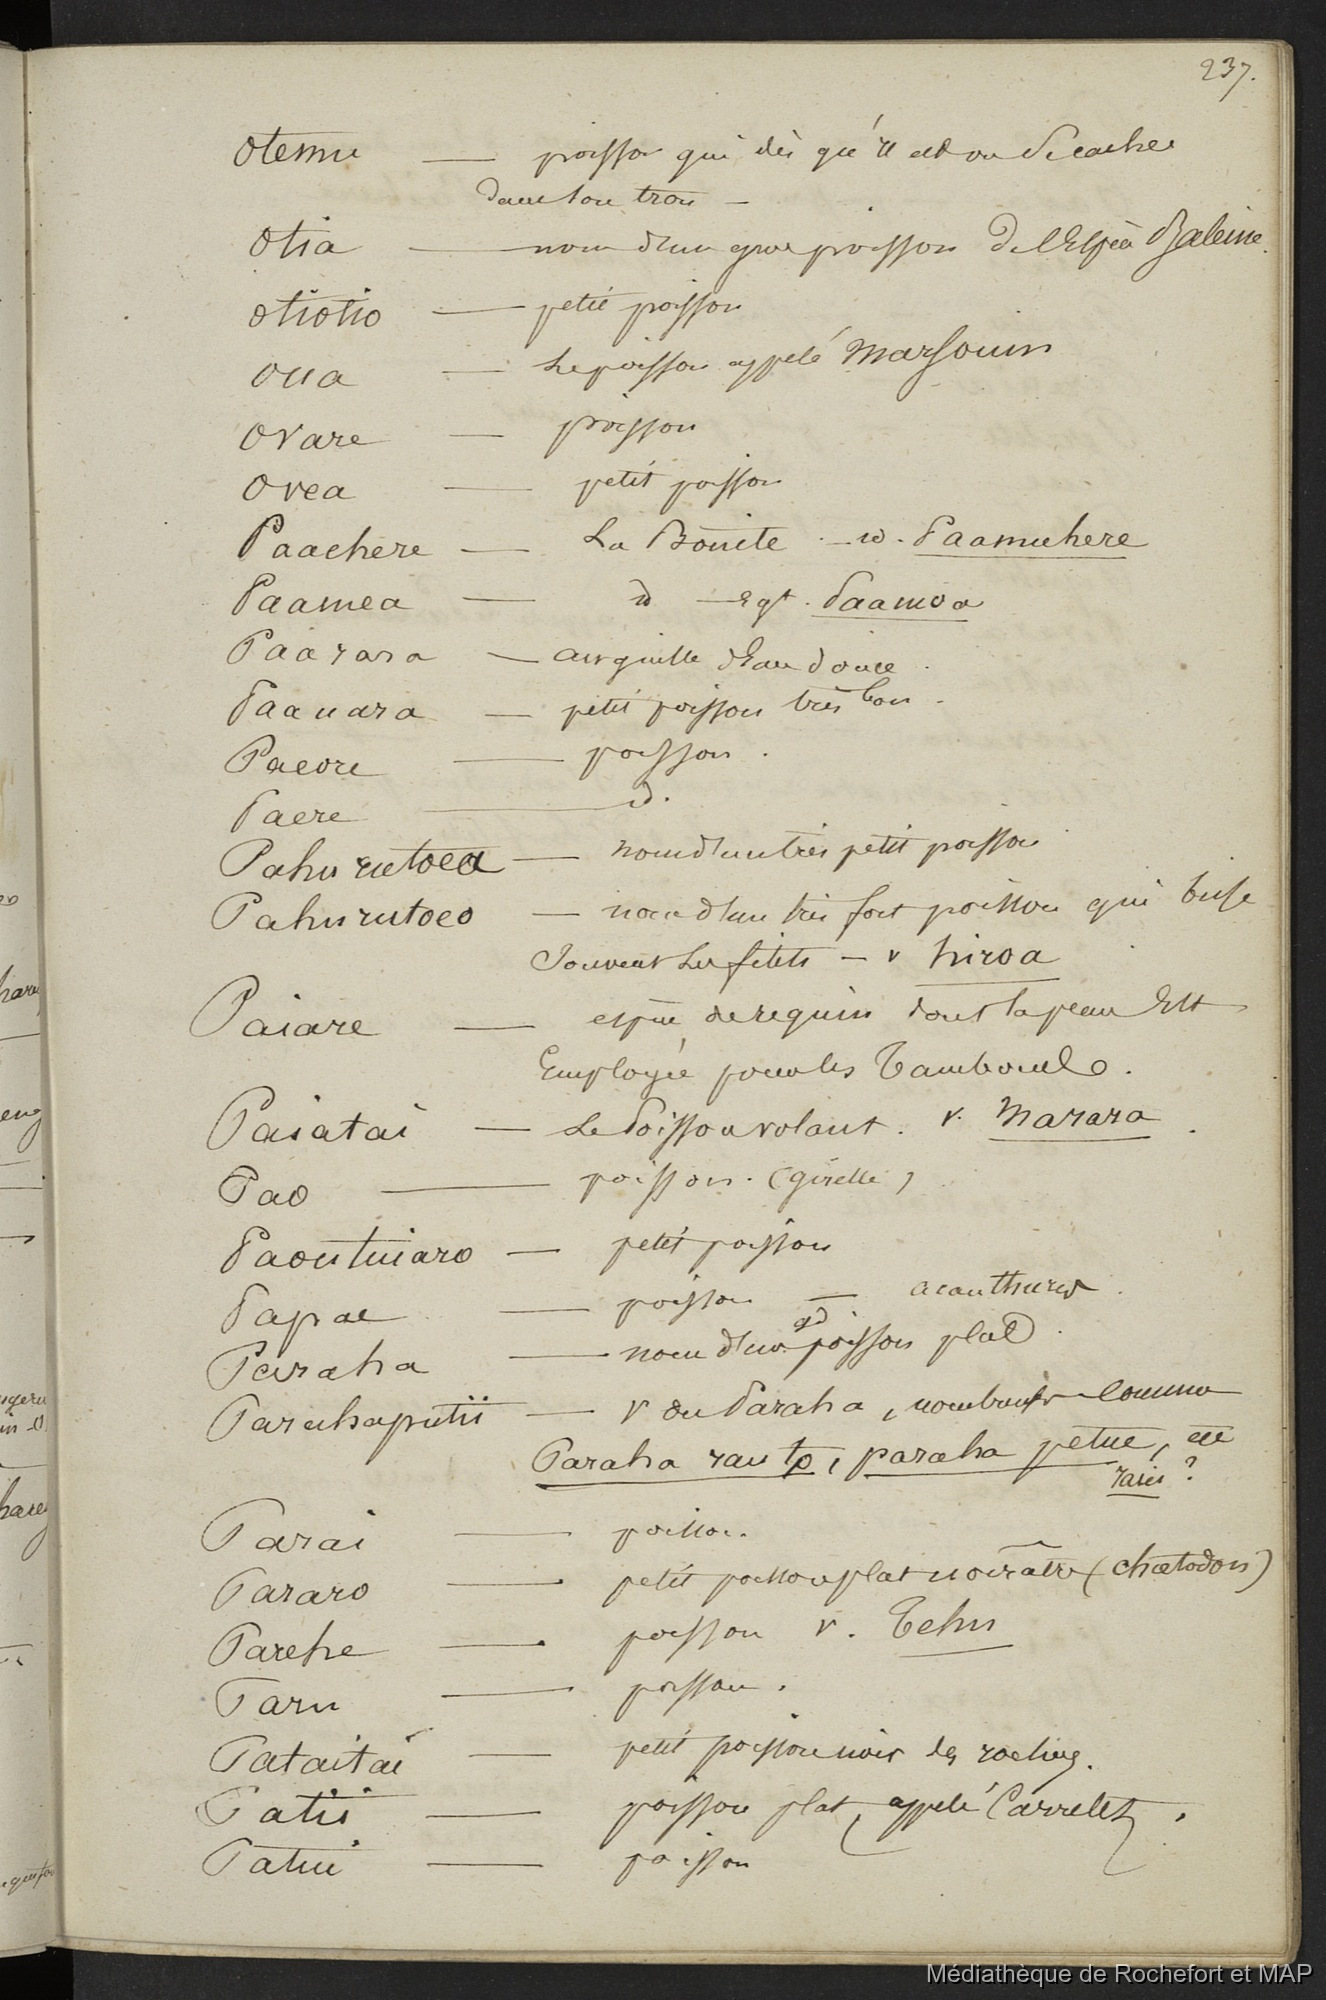 237.
Otemu — poisson qui dès qu'il est vu se cache
dans son trou —
Otia — nom d'un gros poisson de l'Espèce Baleine.
Otiotio — petit poisson
Oua — le poisson appelé Marsouin
Ovare — poisson
Ovea — petit poisson
Paaehere — La Bonite — id. Paamuhere
Paamea — id — Egt. Paamoa
Paarara — anguille d'Eau douce.
Paauara — petit poisson très bon.
Paeore — poisson.
Paere — d.
Pahurutoea — nom d'un très petit poisson
Pahurutoeo — nom d'un très fort poisson qui brise
souvent les filets — v hiroa
Paiare — espèce de requin dont la peau Est
Employée pour les Tambours.
Paiatai — Le Poisson volant. v. Marara.
Pao — poisson. (girelle)
Paoutuiaro — petit poisson
Papae — poisson — acanthurus.
Paraha — nom d'un gd poisson plat.
Parahaputii — v du Paraha, nombreux comme
Paraha rauto, paraha petue, etc
raris ?
Parai — poisson.
Pararo — petit poisson plat noirâtre (chætodon)
Parehe — poisson v. Tehu
Paru — poisson.
Pataitai — petit poisson noir des rochers.
Patii — poisson plat, appelé Carrelet.
Patui — poisson
hara
eng
Médiathèque de Rochefort et MAP